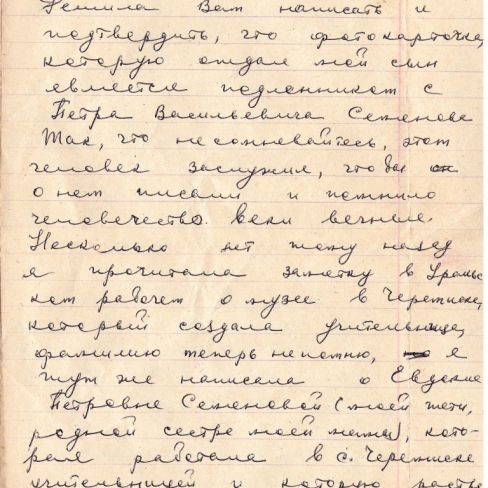 Решила Вам написать и
подтвердить, что фотокарточка,
которую отдал мой сын
является подлинником с
Петра Васильевича Семенова
Так, что не сомневайтесь, этот
человек заслужил, что бы
о нем писали и помнило
человечество веки вечные.
Несколько лет тому назад
я прочитала заметку в Уральс
ком рабочем о музее в Черемиске,
который создала учительница,
фамилию теперь не помню, я
тут же написала о Евдокие
Петровне Семеновой (моей тети,
родной сестре моей мамы), кото-
рая работала в с. Черемиске
учительницей и которую